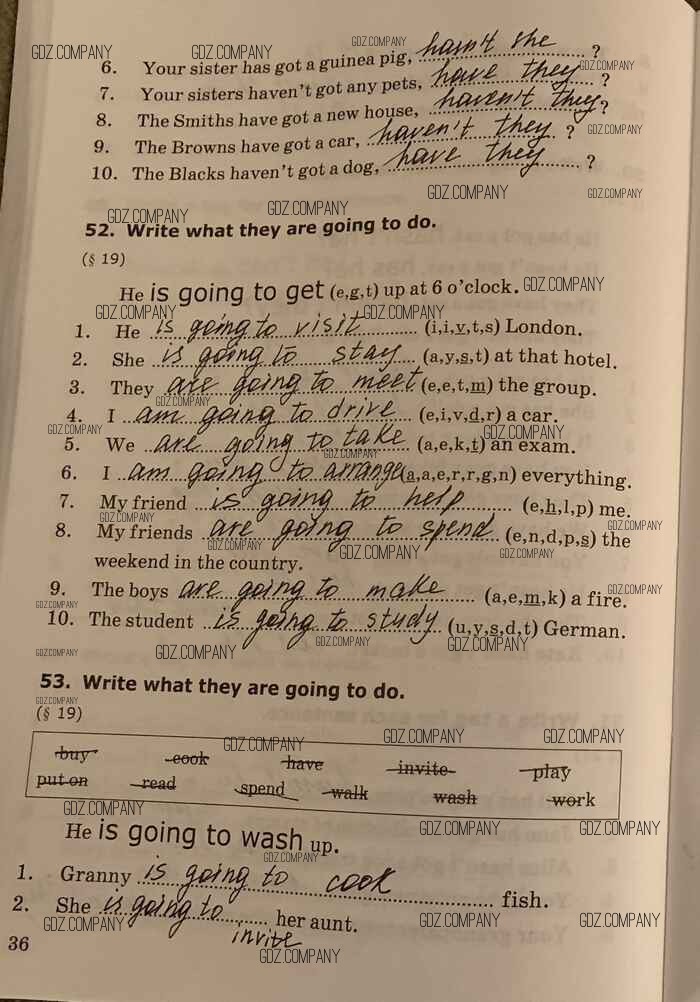 6. Your sister has got a guinea pig, hasn't she ?
7. Your sisters haven't got any pets, have they ?
8. The Smiths have got a new house, haven't they ?
9. The Browns have got a car, haven't they ?
10. The Blacks haven't got a dog, have they ?
52. Write what they are going to do.
(§ 19)
He is going to get (e,g,t) up at 6 o'clock.
1. He is going to visit (i,i,v,t,s) London.
2. She is going to stay (a,y,s,t) at that hotel.
3. They are going to meet (e,e,t,m) the group.
4. I am going to drive (e,i,v,d,r) a car.
5. We are going to take (a,e,k,t) an exam.
6. I am going to arrange (a,a,e,r,r,g,n) everything.
7. My friend is going to help (e,h,l,p) me.
8. My friends are going to spend (e,n,d,p,s) the
weekend in the country.
9. The boys are going to make (a,e,m,k) a fire.
10. The student is going to study (u,y,s,d,t) German.
53. Write what they are going to do.
(§ 19)
buy cook have invite play
put on read spend walk wash work
He is going to wash up.
1. Granny is going to cook fish.
2. She is going to her aunt.
invite
36
GDZ.COMPANY